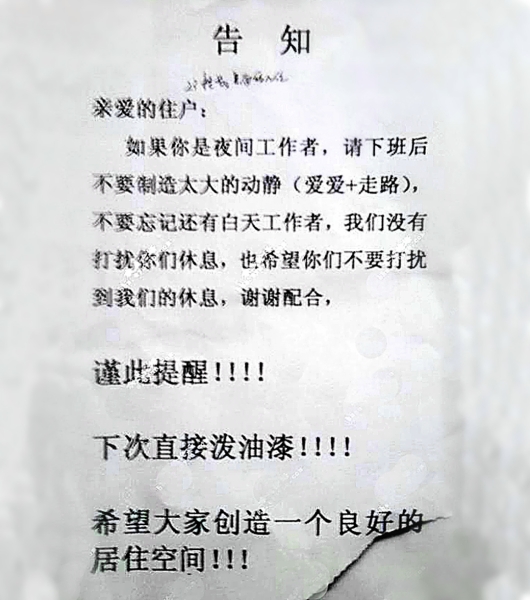 告 知
亲爱的住户：
如果你是夜间工作者，请下班后
不要制造太大的动静（爱爱+走路），
不要忘记还有白天工作者，我们没有
打扰你们休息，也希望你们不要打扰
到我们的休息，谢谢配合，
谨此提醒！！！！
下次直接泼油漆！！！！
希望大家创造一个良好的
居住空间！！！